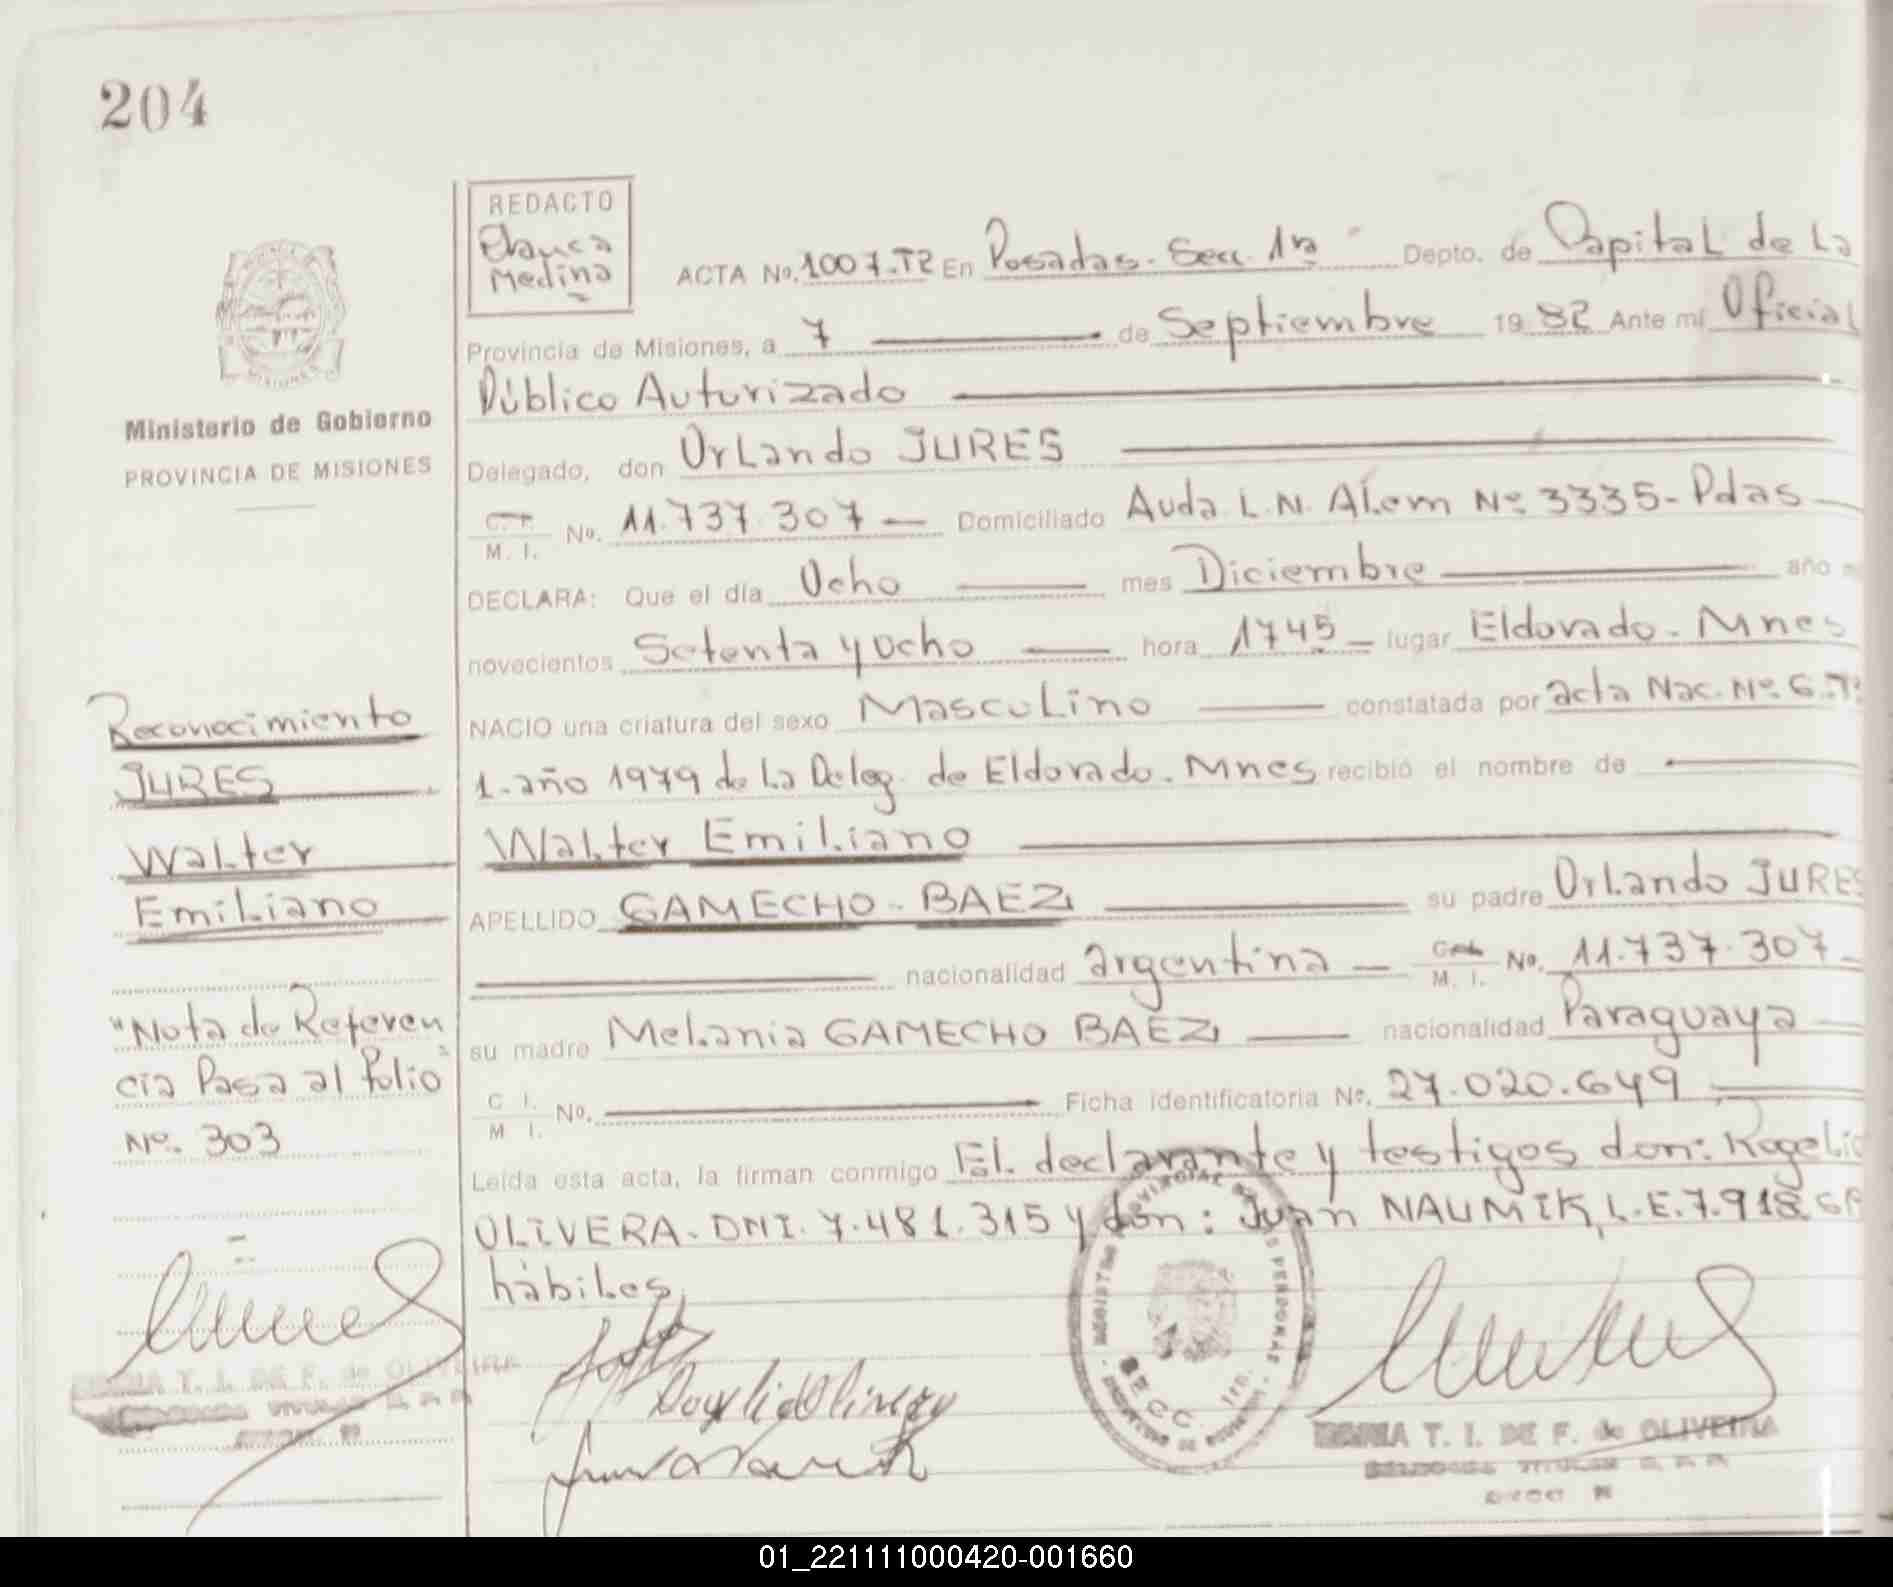 204
REDACTO
Blanca
Medina
ACTA No. 1007.T2 En Posadas. Secc. 1ra Depto. de Capital de La
Provincia de Misiones, a 7 de Septiembre 1982 Ante mí Oficial
Público Autorizado
Delegado, don Orlando JURES
M. I. No. 11.737.307 Domiciliado Avda. L.N. Alem Nº 3335- Pdas
DECLARA: Que el día Ocho mes Diciembre año
novecientos Setenta y Ocho hora 1745 lugar Eldorado. Mnes
NACIO una criatura del sexo Masculino constatada por acta Nac. Nº 6.Tº
1. año 1979 de La Deleg. de Eldorado. Mnes recibió el nombre de
Walter Emiliano
APELLIDO GAMECHO - BAEZ su padre Orlando JURES
nacionalidad argentina M. I. No. 11.737.307
su madre Melania GAMECHO BAEZ nacionalidad Paraguaya
C I. M I. No. Ficha identificatoria No. 27.020.649
Leída esta acta, la firman conmigo El declarante y testigos don: Rogelio
OLIVERA. DNI. 7.481.315 y don: Juan NAUMIK, L.E. 7.918
hábiles
MISIONES
Ministerio de Gobierno
PROVINCIA DE MISIONES
Reconocimiento
JURES
Walter
Emiliano
"Nota de Referen
cia Pasa al folio"
Nº. 303
T. I. DE F. de OLIVEIRA
SECC. 1ra.
T. I. DE F. de OLIVEIRA
01_221111000420-001660